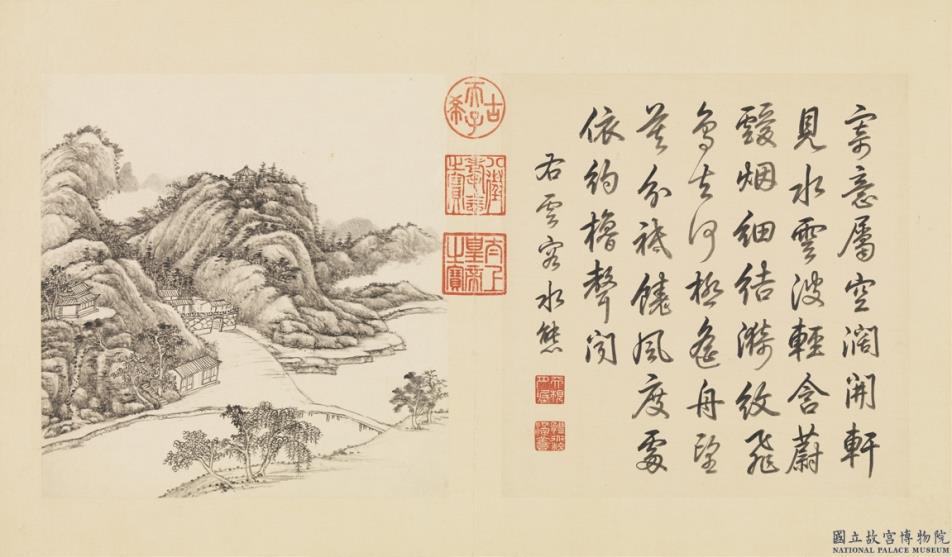 寄意屬空濶開軒
見水雲波輕含蔚
靉烟細結漪紋飛
鳥去何極遙舟望
莫分祗饒風度處
依約櫓聲聞
右雲容水態
古希天子
八徵耄念之寶
太上皇帝之寶
國立故宮博物院
NATIONAL PALACE MUSEUM